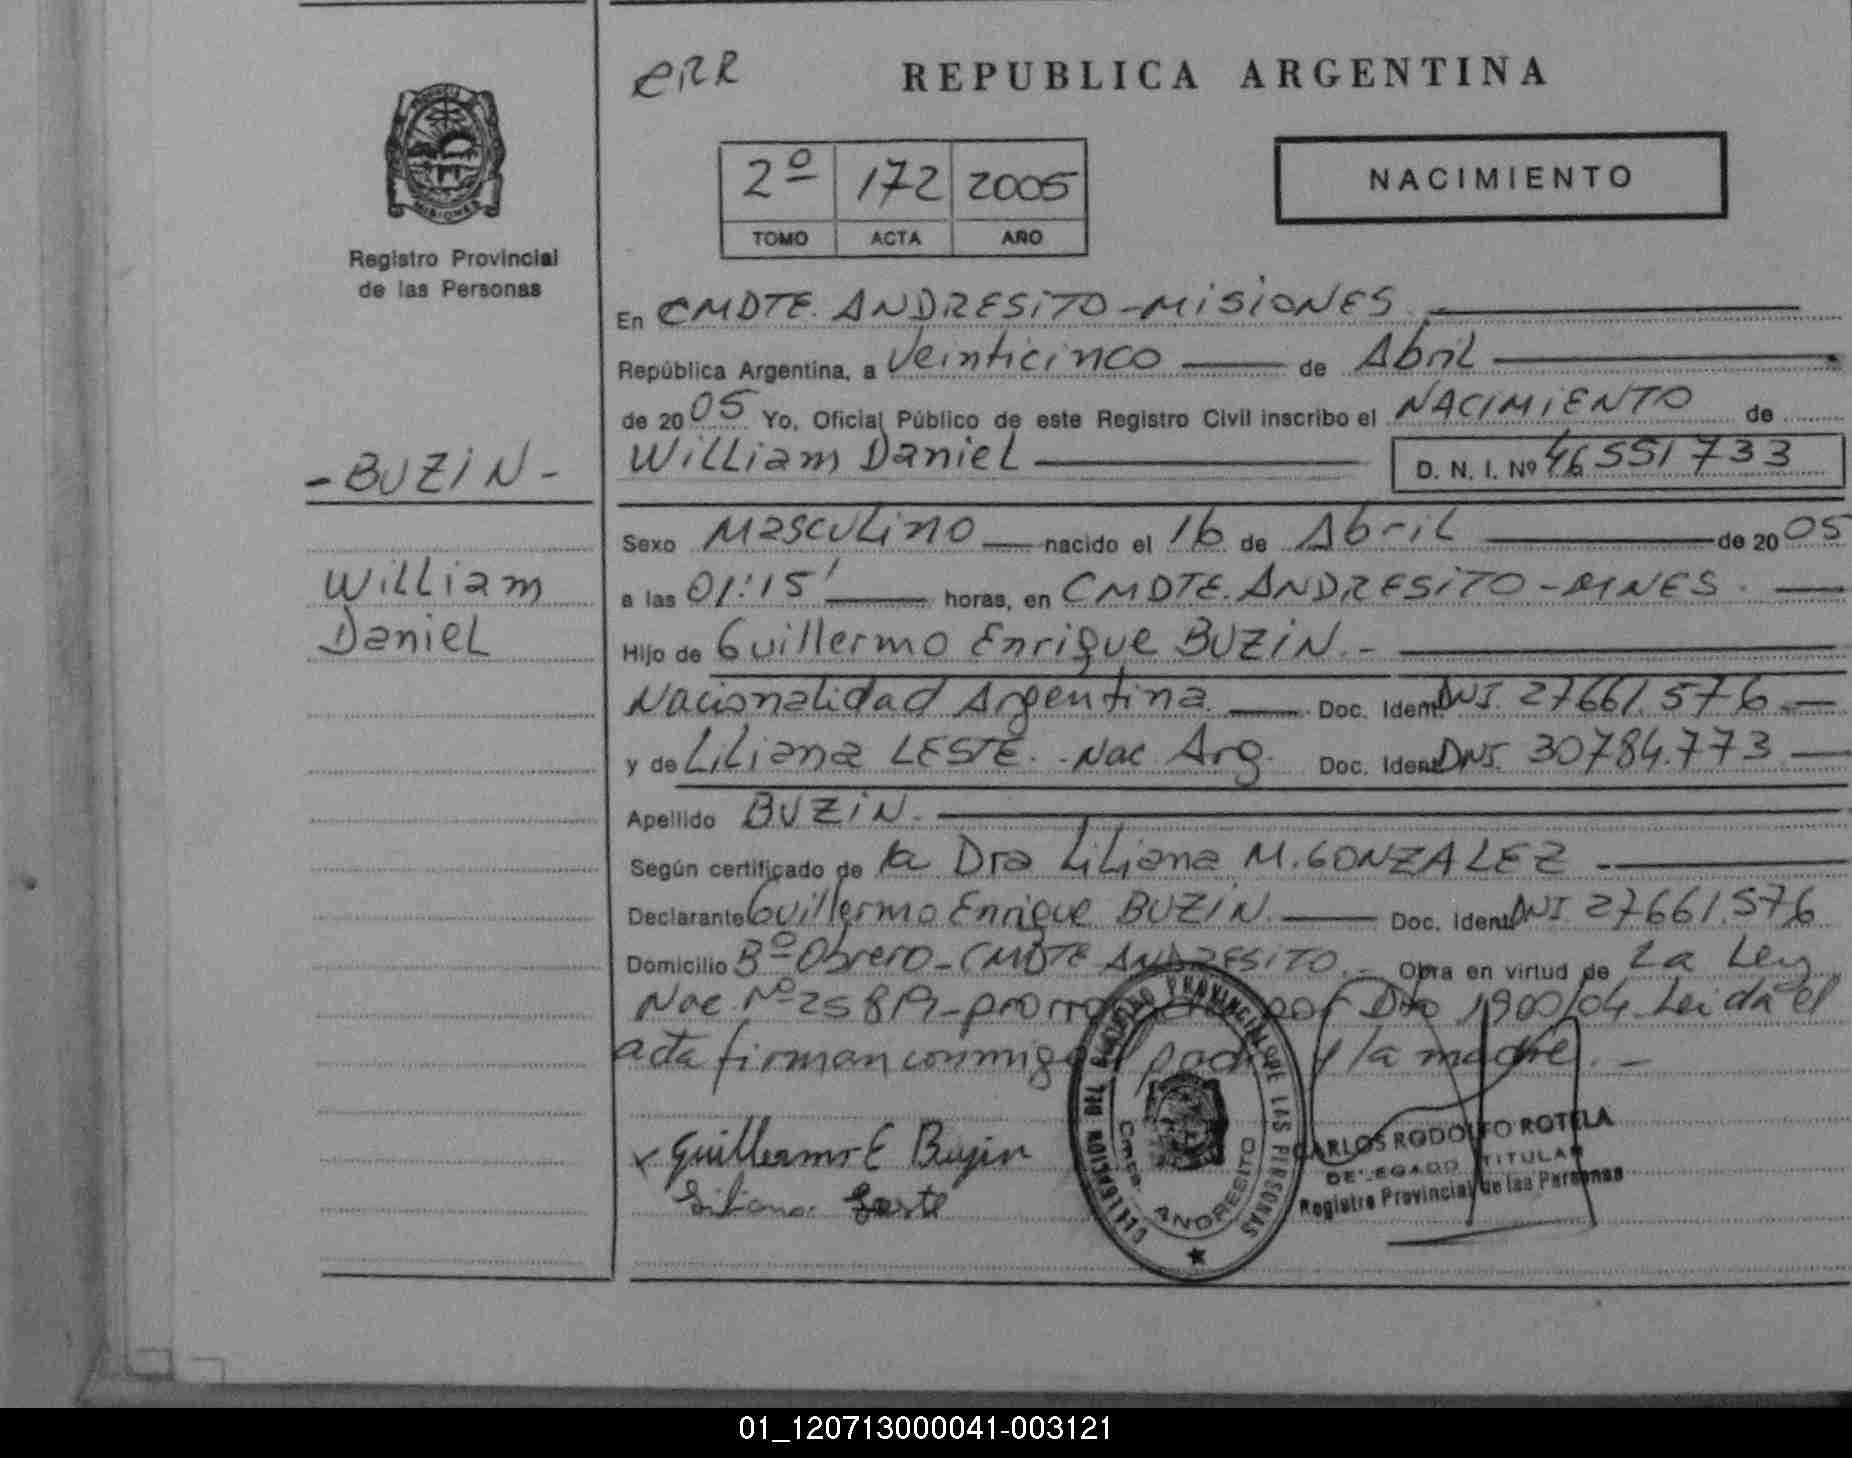 eRR
REPUBLICA ARGENTINA
2º 172 2005
TOMO ACTA AÑO
NACIMIENTO
MISIONES
Registro Provincial
de las Personas
En CMDTE. ANDRESITO-MISIONES
República Argentina, a Veinticinco de Abril
de 2005 Yo, Oficial Público de este Registro Civil inscribo el NACIMIENTO de
William Daniel D. N. I. Nº 46551733
-BUZIN-
William
Daniel
Sexo Masculino nacido el 16 de Abril de 2005
a las 01:15' horas, en CMDTE. ANDRESITO-MNES.
Hijo de Guillermo Enrique BUZIN.-
Nacionalidad Argentina. Doc. Ident. DNI. 27661.576
y de Liliana LESTE. Nac Arg. Doc. Ident. DNI. 30784.773
Apellido BUZIN.
Según certificado de la Dra Liliana M. GONZALEZ
Declarante Guillermo Enrique BUZIN. Doc. Ident. DNI. 27661.576
Domicilio Bº Obrero-CMDTE ANDRESITO.- Obra en virtud de La Ley
Nac. Nº 25819- por Dto 1900/04 Leida el
acta firman conmigo y la madre.-
Guillermo E Buzin
Liliana Leste
DELEGACION DEL REGISTRO PROVINCIAL DE LAS PERSONAS
CMDTE. ANDRESITO
CARLOS RODOLFO ROTELA
DELEGADO TITULAR
Registro Provincial de las Personas
01_120713000041-003121